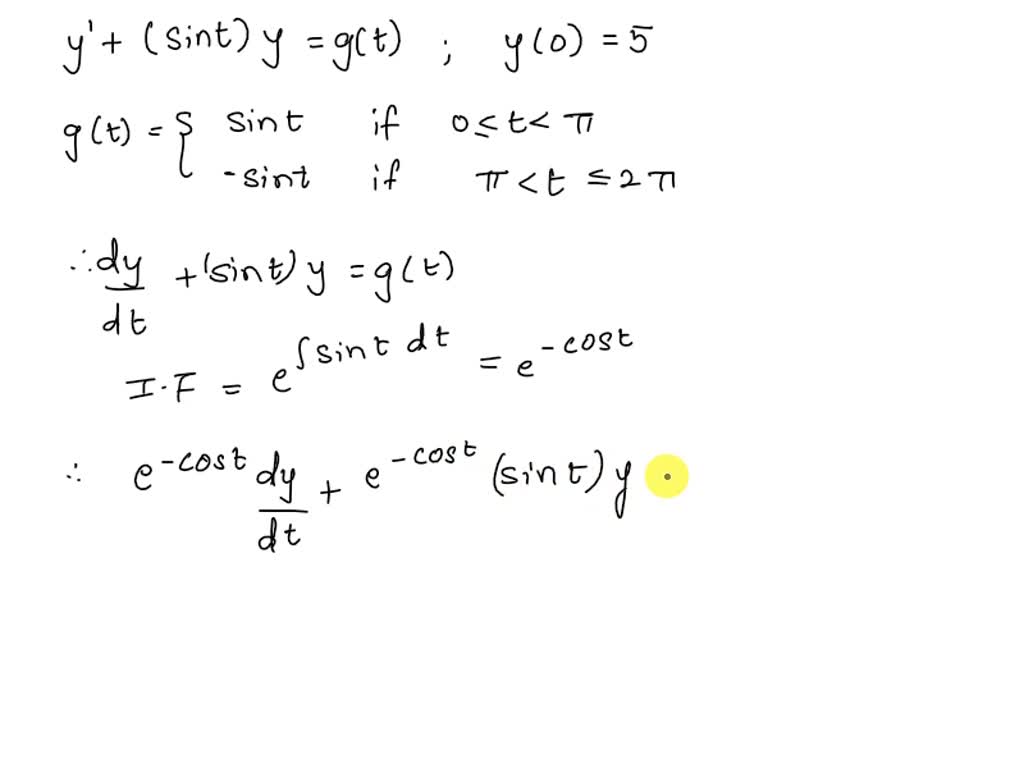 y' + (sint) y = g(t) ; y(0) = 5
g(t) = { sint if 0 ≤ t < π
-sint if π < t ≤ 2π
∴ dy/dt + (sint) y = g(t)
I.F = e^∫sint dt = e^-cost
∴ e^-cost dy/dt + e^-cost (sint) y